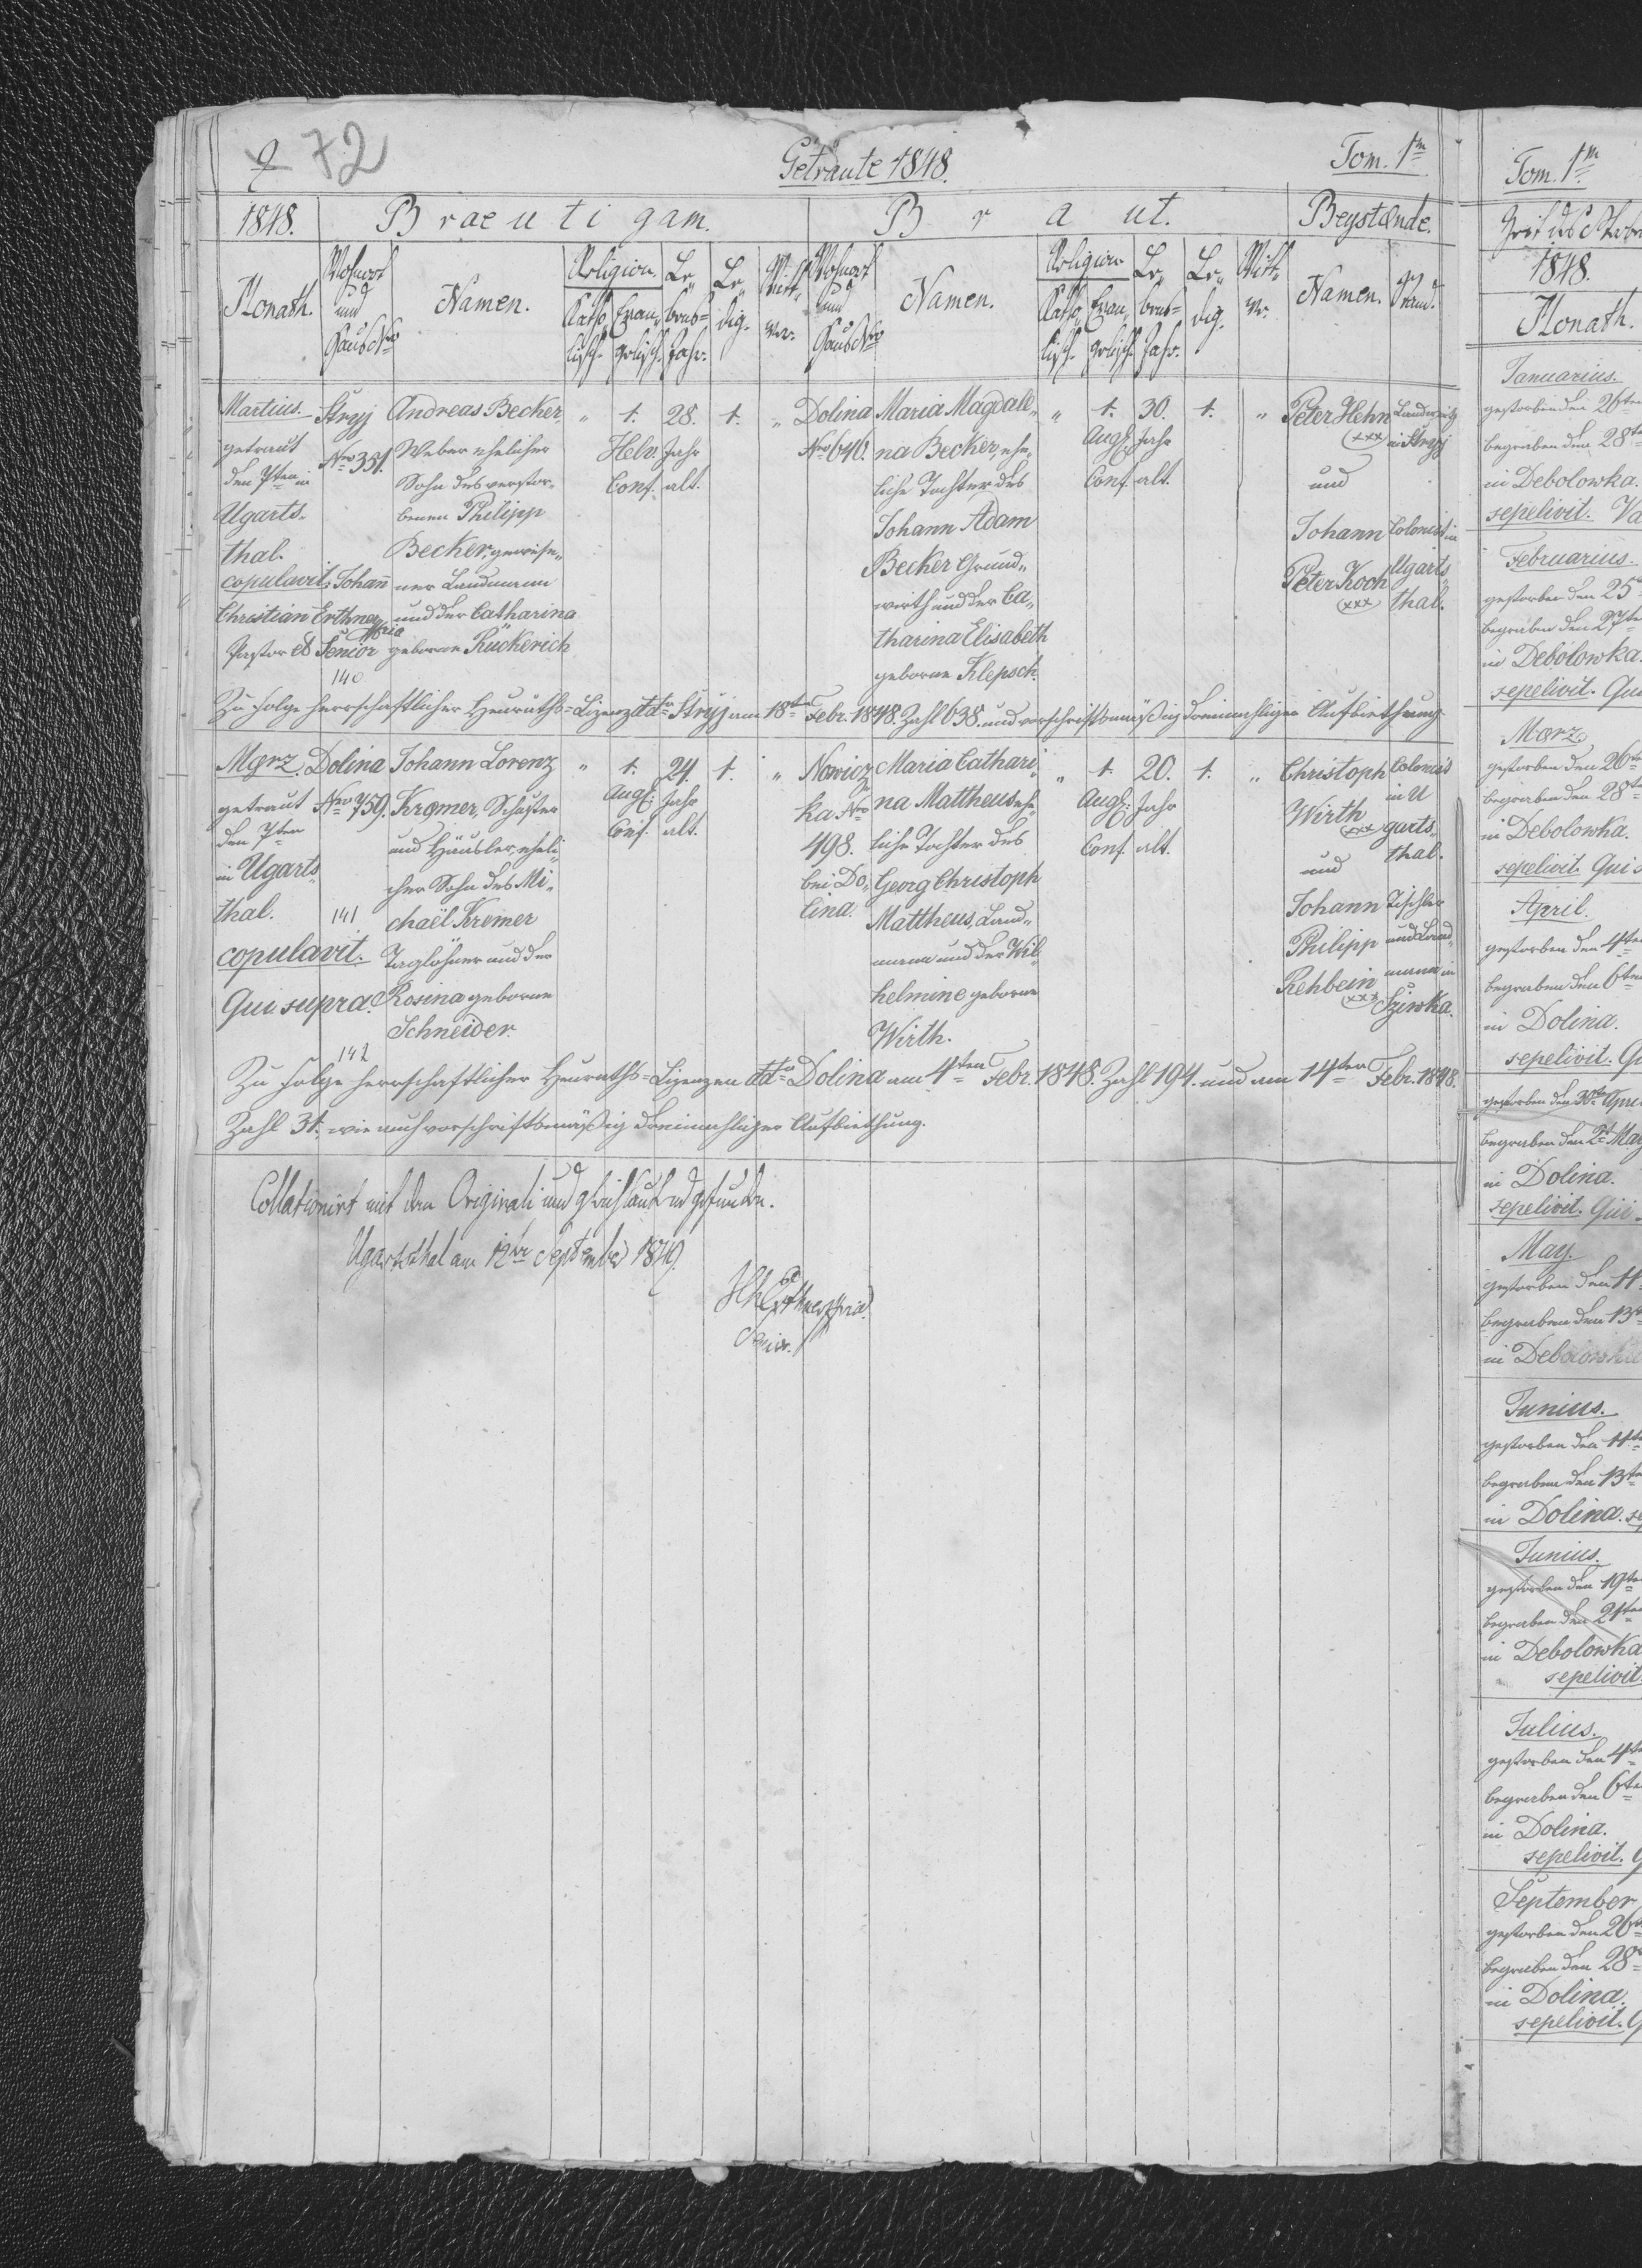 72
Getraute 1848.
Tom. 1m
1848.
Braeutigam.
Braut.
Beystænde.
Monath.
Wohnort und Hausdro
Namen.
Religion.
Catho„ lisch.
Evan„ gelisch.
Le„ bens= Jahr.
Le„ dig.
Witt„ wer.
Wohnort und Hausdro
Namen.
Religion
Catho„ lisch.
Evan„ gelisch.
Le„ bens= Jahr.
Le„ dig.
Witt„ we.
Namen.
Stand.
Martius.
getraut
den 7ten in
Ugarts„
thal.
copulavit: Johañ
Christian Erthner
Pastor et Senior
140
Stryj
Nro 351.
Andreas Becker,
Weber ehelicher
Sohn des verstor„
benen Philipp
Becker, gewese„
ner Landmann
und der Catharina
geborne Rückerich
„
1.
Helv.
Conf.
28.
Jahr
alt.
1.
„
Dolina
Nro 640.
Maria Magdale„
na Becker, ehe„
liche Tochter des
Johann Adam
Becker Grund„
wirth und der Ca„
tharina Elisabeth
geborne Klepsch.
„
1.
Augs:
Conf.
30.
Jahr
alt.
1.
„
Peter Hehn
(xxx)
und
Johann
Peter Koch
(xxx)
in Stryj
Colonist in
Ugarts„
thal.
Zu Folge herrschaftlicher Heuraths=Lizenz ddto Stryj am 18ten Febr. 1848. Zahl 638. und vorschriftsmäßig dreimahliger Aufbiethung.
Mærz.
getraut
den 7ten
in Ugarts„
thal.
141
copulavit.
Qui supra.
Dolina
Nro 759.
Johann Lorenz
Kræmer, Schuster
und Häusler, eheli„
cher Sohn des Mi„
chaël Kremer
Taglöhner und der
Rosina geborne
Schneider.
„
1.
Augs:
Conf.
24.
Jahr
alt.
1.
„
Nowicz„
ka Nro
498.
bei Do„
lina.
Maria Cathari„
na Mattheus ehe„
liche Tochter des
Georg Christoph
Mattheus, Land„
mann und der Wil„
helmine geborne
Wirth.
„
1.
Augs:
Conf.
20.
Jahr
alt.
1.
„
Christoph
Wirth
(xxx)
und
Johann
Philipp
Rehbein
(xxx)
Colonist
in U
garts„
thal.
Tischler
und Land„
mann in
142
Zu Folge herrschaftlicher Heuraths=Lizenzen ddto Dolina am 4ten Febr. 1848. Zahl 194. und am 14ten Febr. 1848.
Zahl 31. wie auch vorschriftsmäßig dreimahliger Aufbiethung.
Collationirt mit dem Originali und gleichlautend gefunden.
Ugartsthal am 12ten September 1849.
Senior.
Tom. 1m
1848.
Monath.
Januarius.
gestorben den 26ten
begraben den 28te
in Debolowka.
sepelivit. Va
Februarius.
gestorben den 25
begraben den 27te
in Debolowka.
sepelivit. Qui
Mærz.
gestorben den 26te
begraben den 28te
in Debolowka.
sepelivit. Qui s
April.
gestorben den 4ten
begraben den 6ten
in Dolina.
sepelivit. Qu
gestorben den 30ten Apri
begraben den 2t May
in Dolina.
sepelivit. Qui
May.
gestorben den 11
begraben den 13
in Debolowka
Junius.
gestorben den 11te
begraben den 13te
in Dolina. se
Junius.
gestorben den 19te
begraben den 21ten
in Debolowka
sepelivit
Julius.
gestorben den 4te
begraben den 6te
in Dolina.
sepelivit. Q
September
gestorben den 26
begraben den 28
in Dolina.
sepelivit. Q